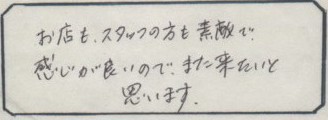 お店も、スタッフの方も素敵で、
感じが良いので、また来たいと
思います。